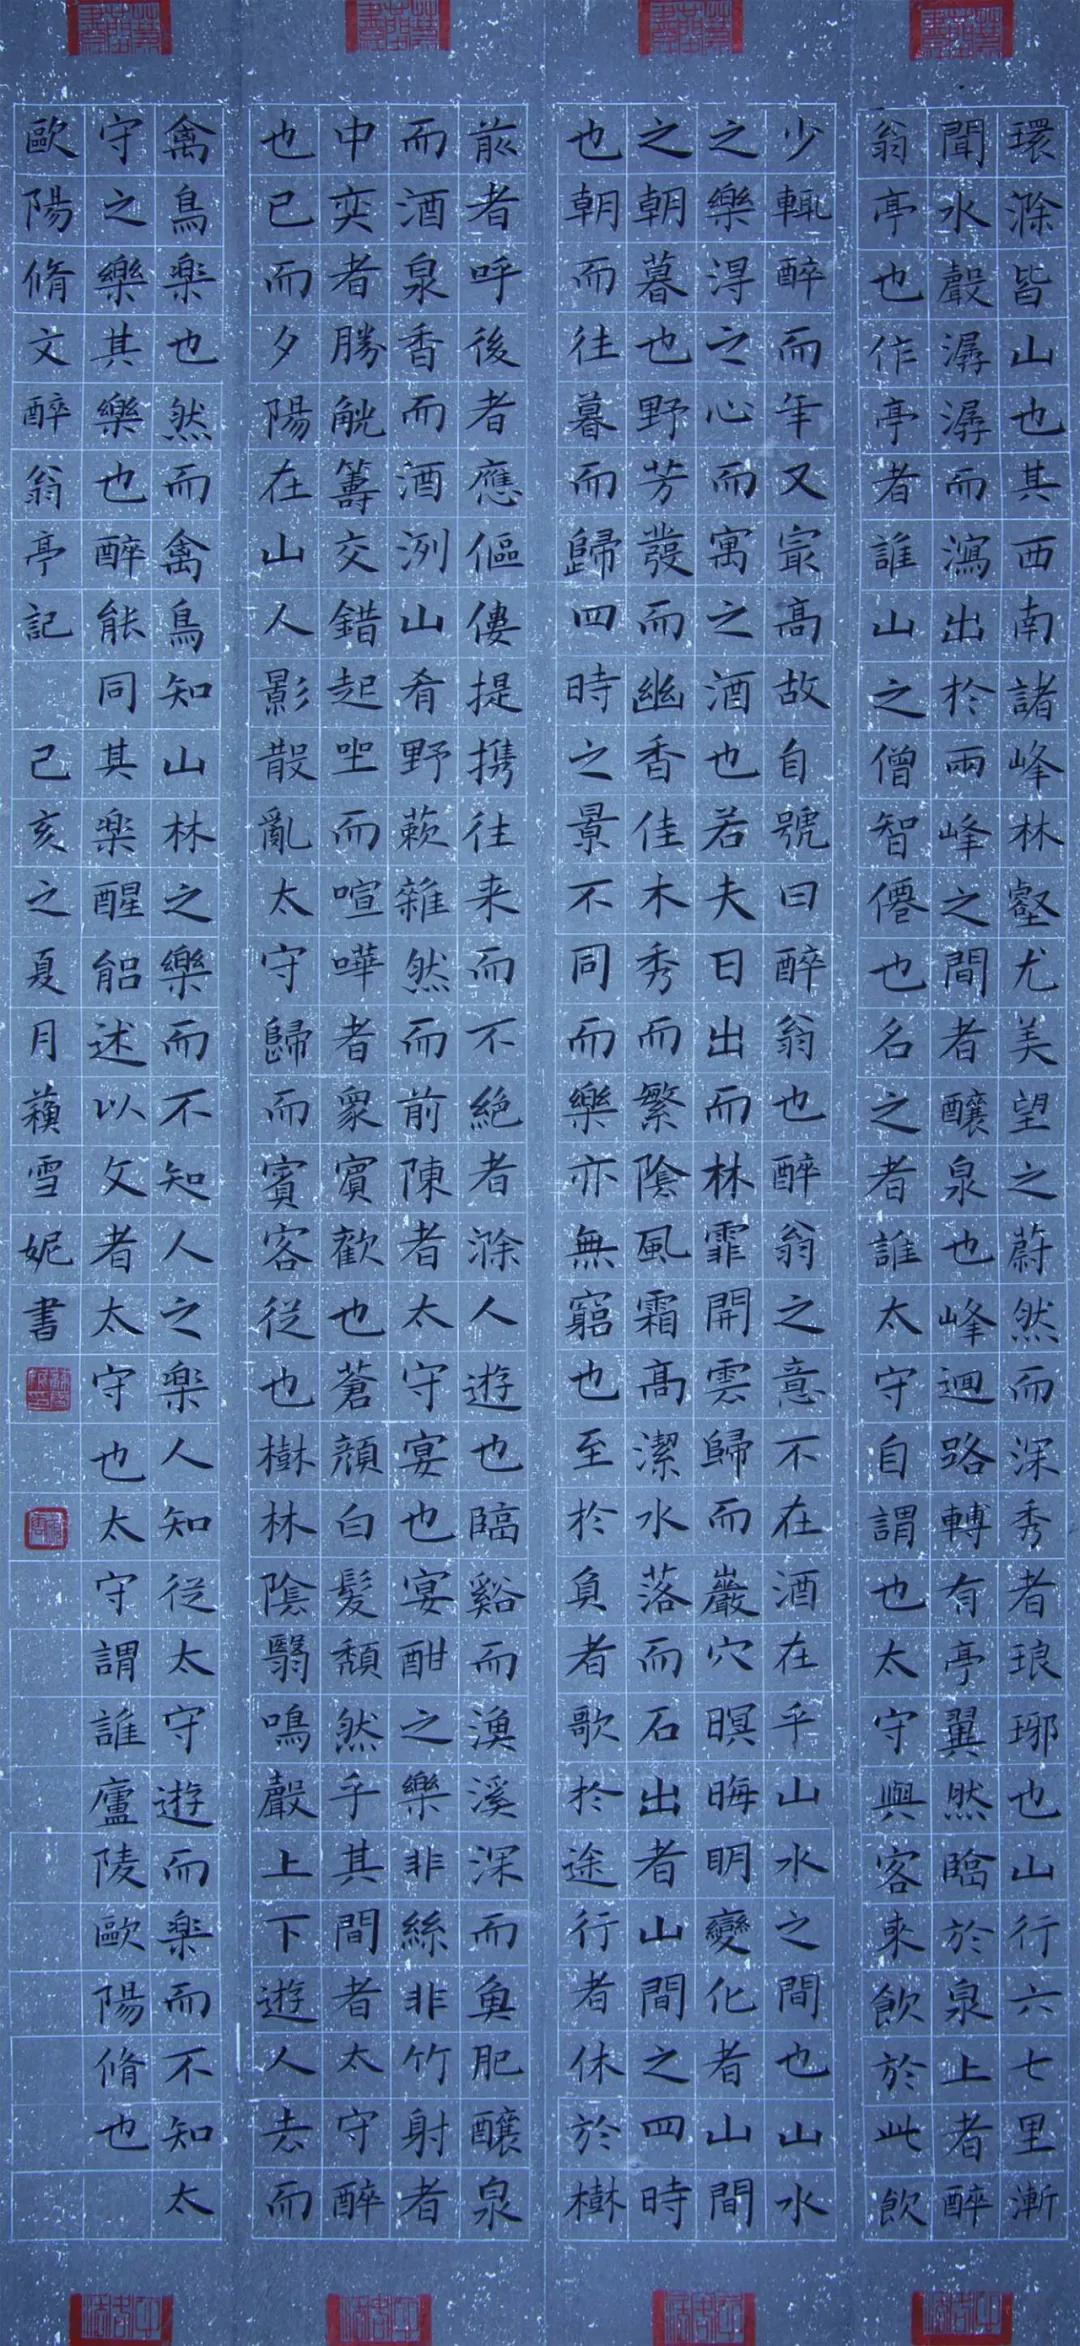 環滁皆山也其西南諸峰林壑尤美望之蔚然而深秀者琅琊也山行六七里漸
聞水聲潺潺而瀉出於兩峰之間者釀泉也峰迴路轉有亭翼然臨於泉上者醉
翁亭也作亭者誰山之僧智僊也名之者誰太守自謂也太守與客來飲於此飲
少輒醉而年又最高故自號曰醉翁也醉翁之意不在酒在乎山水之間也山水
之樂得之心而寓之酒也若夫日出而林霏開雲歸而巖穴暝晦明變化者山間
之朝暮也野芳發而幽香佳木秀而繁陰風霜高潔水落而石出者山間之四時
也朝而往暮而歸四時之景不同而樂亦無窮也至於負者歌於途行者休於樹
前者呼後者應傴僂提携往来而不絕者滁人遊也臨谿而漁溪深而魚肥釀泉
而酒泉香而酒洌山肴野蔌雜然而前陳者太守宴也宴酣之樂非絲非竹射者
中奕者勝觥籌交錯起坐而喧嘩者衆賓歡也蒼顏白髮頹然乎其間者太守醉
也已而夕陽在山人影散亂太守歸而賓客從也樹林陰翳鳴聲上下遊人去而
禽鳥楽也然而禽鳥知山林之樂而不知人之楽人知從太守遊而楽而不知太
守之樂其樂也醉能同其楽醒能述以文者太守也太守謂誰廬陵歐陽脩也
歐陽脩文醉翁亭記 己亥之夏月蘓雪妮書